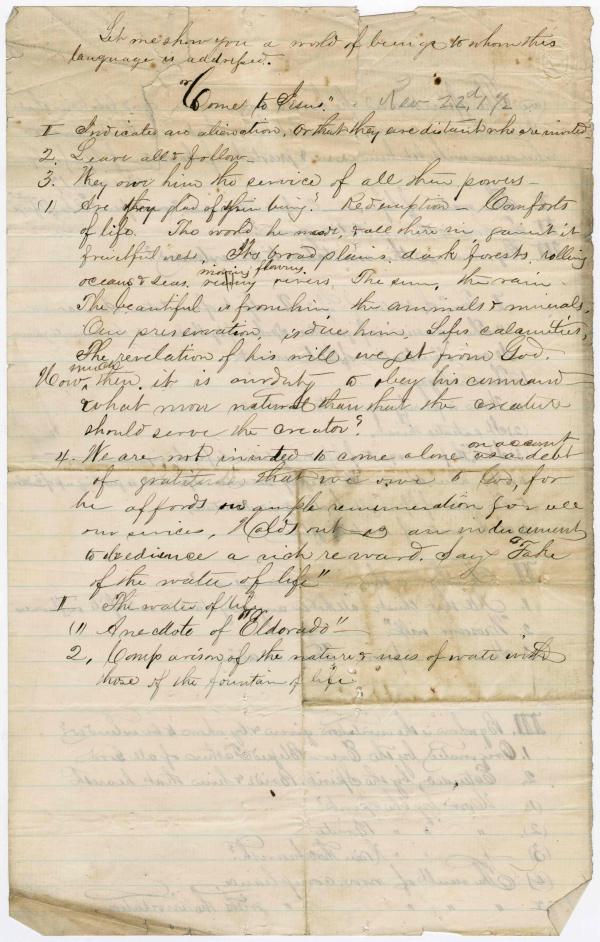 Let me show you a world of beings to whom this
language is addressed.
"Come to Jesus." Rev 22d, 17 1/2
I Indicate an alienation, or that they are distant who are invited
2. Leave all & follow.
3. They owe him the service of all their powers –
(1 Are they glad of their being? Redemption – Comforts
of life. The world he made, & all there in gave it
fruitfulness. Its broad plains, dark forests, rolling
oceans & seas, rivers, The sun, the rain
The beautiful is from him, the animals & minerals,
Our preservation is due him, Life's calamities,
The revelation of his will we get from God.
Now, then, it is our duty to obey his command
& what more natural than that the creature
should serve the creator?
4. We are not invited to come alone on account as a debt
of gratitude that we owe to God, for
he affords an ample remuneration for all
our services, Holds out as an inducement
to obedience a rich reward. Say "Take
of the water of life"
I The water of life
(1 Anecdote of "Eldorado" –
2, Comparison of the nature & uses of water with
those of the fountain of life